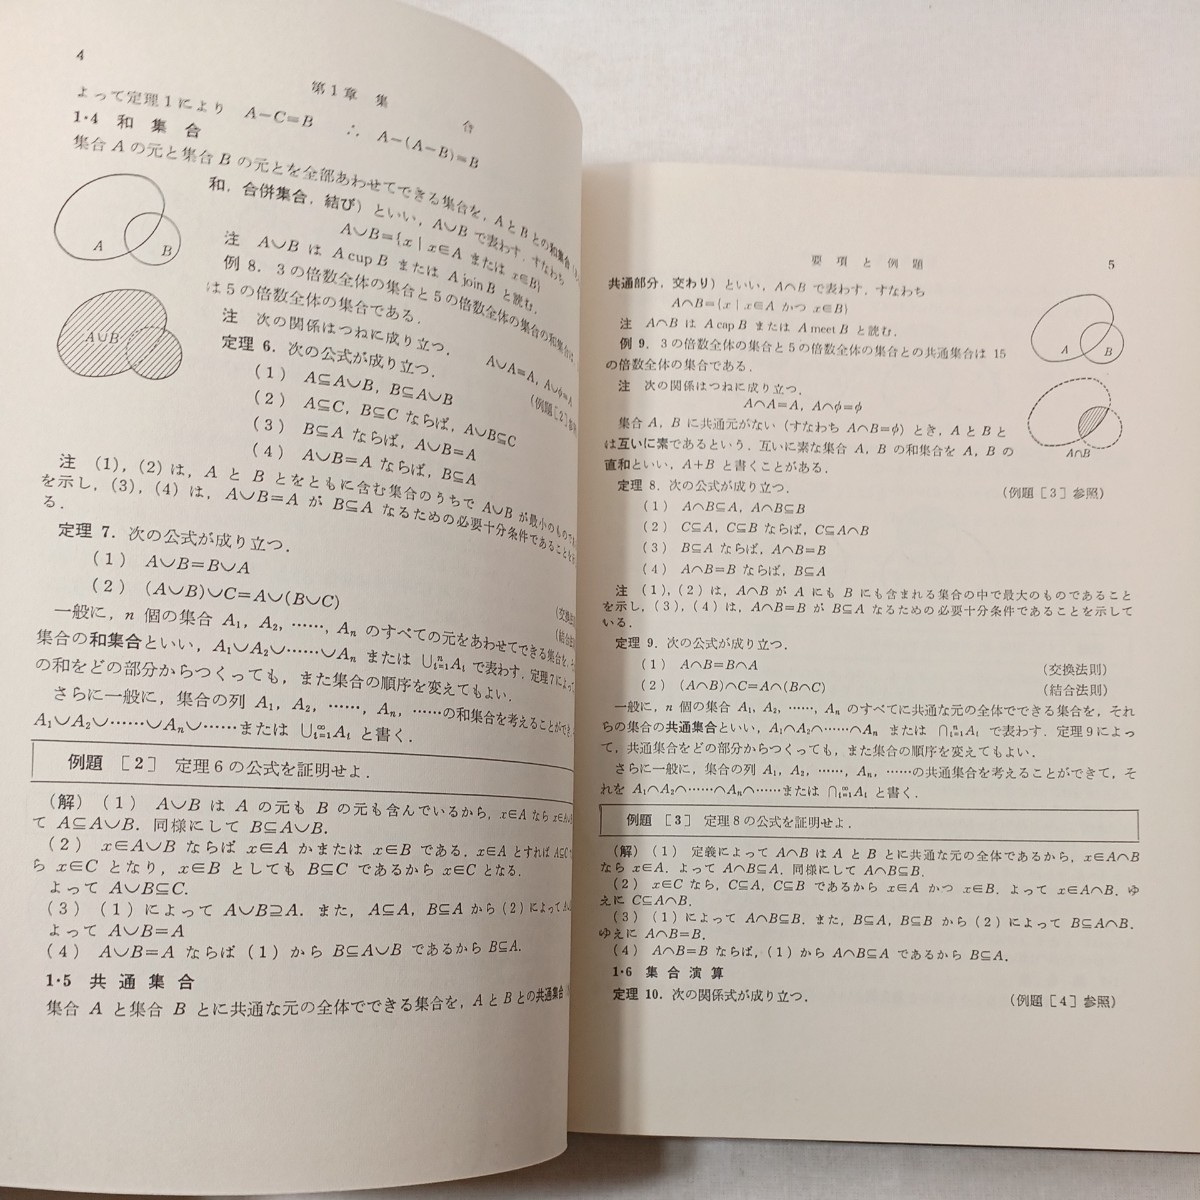 4
第1章 集 合
よって定理1により A−C=B ∴ A−(A−B)=B
1・4 和集合
集合 A の元と集合 B の元とを全部あわせてできる集合を，A と B との和集合
和，合併集合，結び）といい，A∪B で表わす．すなわち
A∪B={x|x∈A または x∈B}
注 A∪B は A cup B または A join B と読む．
例 8．3の倍数全体の集合と5の倍数全体の集合の和集合は，
は5の倍数全体の集合である．
注 次の関係はつねに成り立つ． A∪A=A, A∪φ=A
定理 6．次の公式が成り立つ． （例題［2］参
(1) A⊆A∪B, B⊆A∪B
(2) A⊆C, B⊆C ならば，A∪B⊆C
(3) B⊆A ならば，A∪B=A
(4) A∪B=A ならば，B⊆A
A
B
A∪B
注 (1)，(2)は，A と B とをともに含む集合のうちで A∪B が最小のもので
を示し，(3)，(4)は，A∪B=A が B⊆A なるための必要十分条件であることを
る．
定理 7．次の公式が成り立つ．
(1) A∪B=B∪A （交換法
(2) (A∪B)∪C=A∪(B∪C) （結合法
一般に，n 個の集合 A1，A2，……，An のすべての元をあわせてできる集合を，
集合の和集合といい，A1∪A2∪……∪An または ∪ⁿᵢ₌₁Aᵢ で表わす．定理7によって
の和をどの部分からつくっても，また集合の順序を変えてもよい．
さらに一般に，集合の列 A1，A2，……，An，……の和集合を考えることができ
A1∪A2∪……∪An∪……または ∪^∞ᵢ₌₁Aᵢ と書く．
例題 ［2］ 定理6の公式を証明せよ．
（解）(1) A∪B は A の元も B の元も含んでいるから，x∈A なら x∈A∪B
て A⊆A∪B．同様にして B⊆A∪B．
(2) x∈A∪B ならば x∈A かまたは x∈B である．x∈A とすれば A⊆C
ら x∈C となり，x∈B としても B⊆C であるから x∈C となる．
よって A∪B⊆C．
(3) (1)によって A∪B⊇A．また，A⊆A，B⊆A から(2)によって
よって A∪B=A
(4) A∪B=A ならば(1)から B⊆A∪B であるから B⊆A．
1・5 共通集合
集合 A と集合 B とに共通な元の全体でできる集合を，A と B との共通集合
要項と例題 5
共通部分，交わり）といい，A∩B で表わす．すなわち
A∩B={x|x∈A かつ x∈B}
注 A∩B は A cap B または A meet B と読む．
例 9．3の倍数全体の集合と5の倍数全体の集合との共通集合は 15
の倍数全体の集合である．
注 次の関係はつねに成り立つ．
A∩A=A, A∩φ=φ
集合 A，B に共通元がない（すなわち A∩B=φ）とき，A と B と
は互いに素であるという．互いに素な集合 A，B の和集合を A，B の
直和といい，A+B と書くことがある．
A
B
A∩B
定理 8．次の公式が成り立つ． （例題［3］参照）
(1) A∩B⊆A, A∩B⊆B
(2) C⊆A, C⊆B ならば，C⊆A∩B
(3) B⊆A ならば，A∩B=B
(4) A∩B=B ならば，B⊆A
注 (1)，(2)は，A∩B が A にも B にも含まれる集合の中で最大のものであること
を示し，(3)，(4)は，A∩B=B が B⊆A なるための必要十分条件であることを示して
いる．
定理 9．次の公式が成り立つ．
(1) A∩B=B∩A （交換法則）
(2) (A∩B)∩C=A∩(B∩C) （結合法則）
一般に，n 個の集合 A1，A2，……，An のすべてに共通な元の全体でできる集合を，それ
らの集合の共通集合といい，A1∩A2∩……∩An または ∩ⁿᵢ₌₁Aᵢ で表わす．定理9によっ
て，共通集合をどの部分からつくっても，また集合の順序を変えてもよい．
さらに一般に，集合の列 A1，A2，……，An，……の共通集合を考えることができて，そ
れを A1∩A2∩……∩An∩……または ∩^∞ᵢ₌₁Aᵢ と書く．
例題 ［3］ 定理8の公式を証明せよ．
（解）(1) 定義によって A∩B は A と B とに共通な元の全体であるから，x∈A∩B
なら x∈A．よって A∩B⊆A．同様にして A∩B⊆B．
(2) x∈C なら，C⊆A，C⊆B であるから x∈A かつ x∈B．よって x∈A∩B．ゆ
えに C⊆A∩B．
(3) (1)によって A∩B⊆B．また，B⊆A，B⊆B から(2)によって B⊆A∩B．
ゆえに A∩B=B．
(4) A∩B=B ならば，(1)から A∩B⊆A であるから B⊆A．
1・6 集合演算
定理 10．次の関係式が成り立つ． （例題［4］参照）